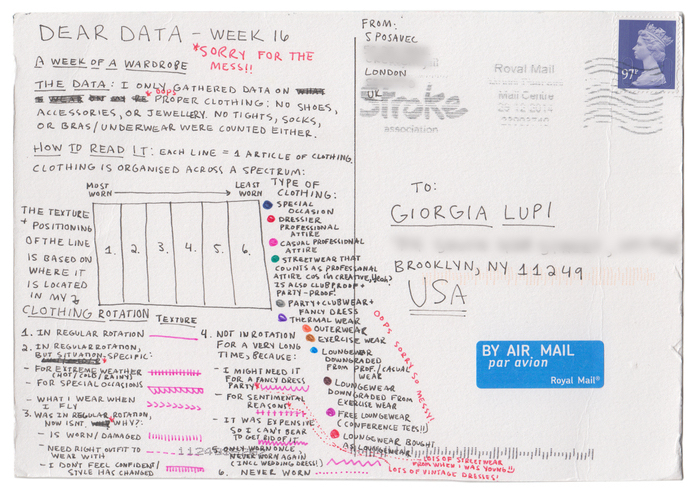 DEAR DATA - WEEK 16
*SORRY FOR THE
MESS!!
A WEEK OF A WARDROBE
THE DATA: I ONLY GATHERED DATA ON
*OOPS
PROPER CLOTHING: NO SHOES,
ACCESSORIES, OR JEWELLERY. NO TIGHTS, SOCKS,
OR BRAS/UNDERWEAR WERE COUNTED EITHER.
HOW TO READ IT: EACH LINE = 1 ARTICLE OF CLOTHING.
CLOTHING IS ORGANISED ACROSS A SPECTRUM:
MOST
WORN
LEAST
WORN
THE TEXTURE
+ POSITIONING
OF THE LINE
IS BASED ON
WHERE IT
IS LOCATED
IN MY
CLOTHING ROTATION
1. 2. 3. 4. 5. 6.
TYPE OF
CLOTHING:
SPECIAL
OCCASION
DRESSIER
PROFESSIONAL
ATTIRE
CASUAL PROFESSIONAL
ATTIRE
STREETWEAR THAT
COUNTS AS PROFESSIONAL
ATTIRE COS I'M CREATIVE,
IS ALSO CLUBPROOF +
PARTY-PROOF.
PARTY+CLUBWEAR +
FANCY DRESS
THERMAL WEAR
OUTERWEAR
EXERCISE WEAR
LOUNGEWEAR
DOWNGRADED
FROM PROF./CASUAL
WEAR
LOUNGEWEAR
DOWNGRADED FROM
EXERCISE WEAR
FREE LOUNGEWEAR
(CONFERENCE TEES!!)
LOUNGEWEAR BOUGHT
AS LOUNGEWEAR
TEXTURE
1. IN REGULAR ROTATION
2. IN REGULAR ROTATION,
BUT SITUATION-SPECIFIC:
- FOR EXTREME WEATHER
(HOT/COLD/RAINY)
- FOR SPECIAL OCCASIONS
- WHAT I WEAR WHEN
I FLY
3. WAS IN REGULAR ROTATION,
NOW ISN'T. WHY?:
- IS WORN/DAMAGED
- NEED RIGHT OUTFIT TO
WEAR WITH
- I DON'T FEEL CONFIDENT/
STYLE HAS CHANGED
4. NOT IN ROTATION
FOR A VERY LONG
TIME, BECAUSE:
- I MIGHT NEED IT
FOR A FANCY DRESS
PARTY*
- FOR SENTIMENTAL
REASONS*
- IT WAS EXPENSIVE
SO I CAN'T BEAR
TO GET RID OF IT
5. ONLY WORN ONCE,
NEVER WORN AGAIN
(INCL WEDDING DRESS!)
6. NEVER WORN
OOPS SORRY SO MESSY!
*LOTS OF STREETWEAR
FROM WHEN I WAS YOUNG!!
LOTS OF VINTAGE DRESSES!
FROM:
S POSAVEC
LONDON
UK
Stroke
association
Royal Mail
Mail Centre
97P
TO:
GIORGIA LUPI
BROOKLYN, NY 11249
USA
BY AIR MAIL
par avion
Royal Mail®